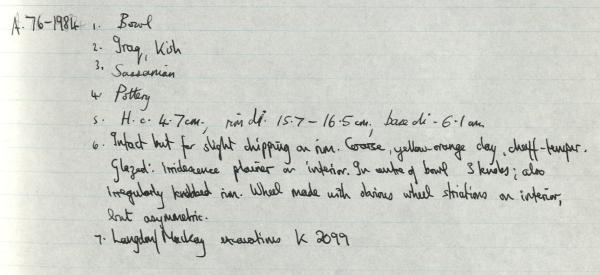 A.76-1984 1. Bowl
2. Iraq, Kish
3. Sassanian
4. Pottery
5. H. c. 4.7cm; rim di. 15.7 - 16.5cm; base di - 6.1cm
6. Intact but for slight chipping on rim. Coarse, yellow-orange clay, chaff-temper.
Glazed: iridescence plainer on interior. In centre of bowl 3 knobs; also
irregularly knobbed rim. Wheel made with obvious wheel striations on interior,
but asymmetric.
7. Langdon/Mackay excavations K 2099